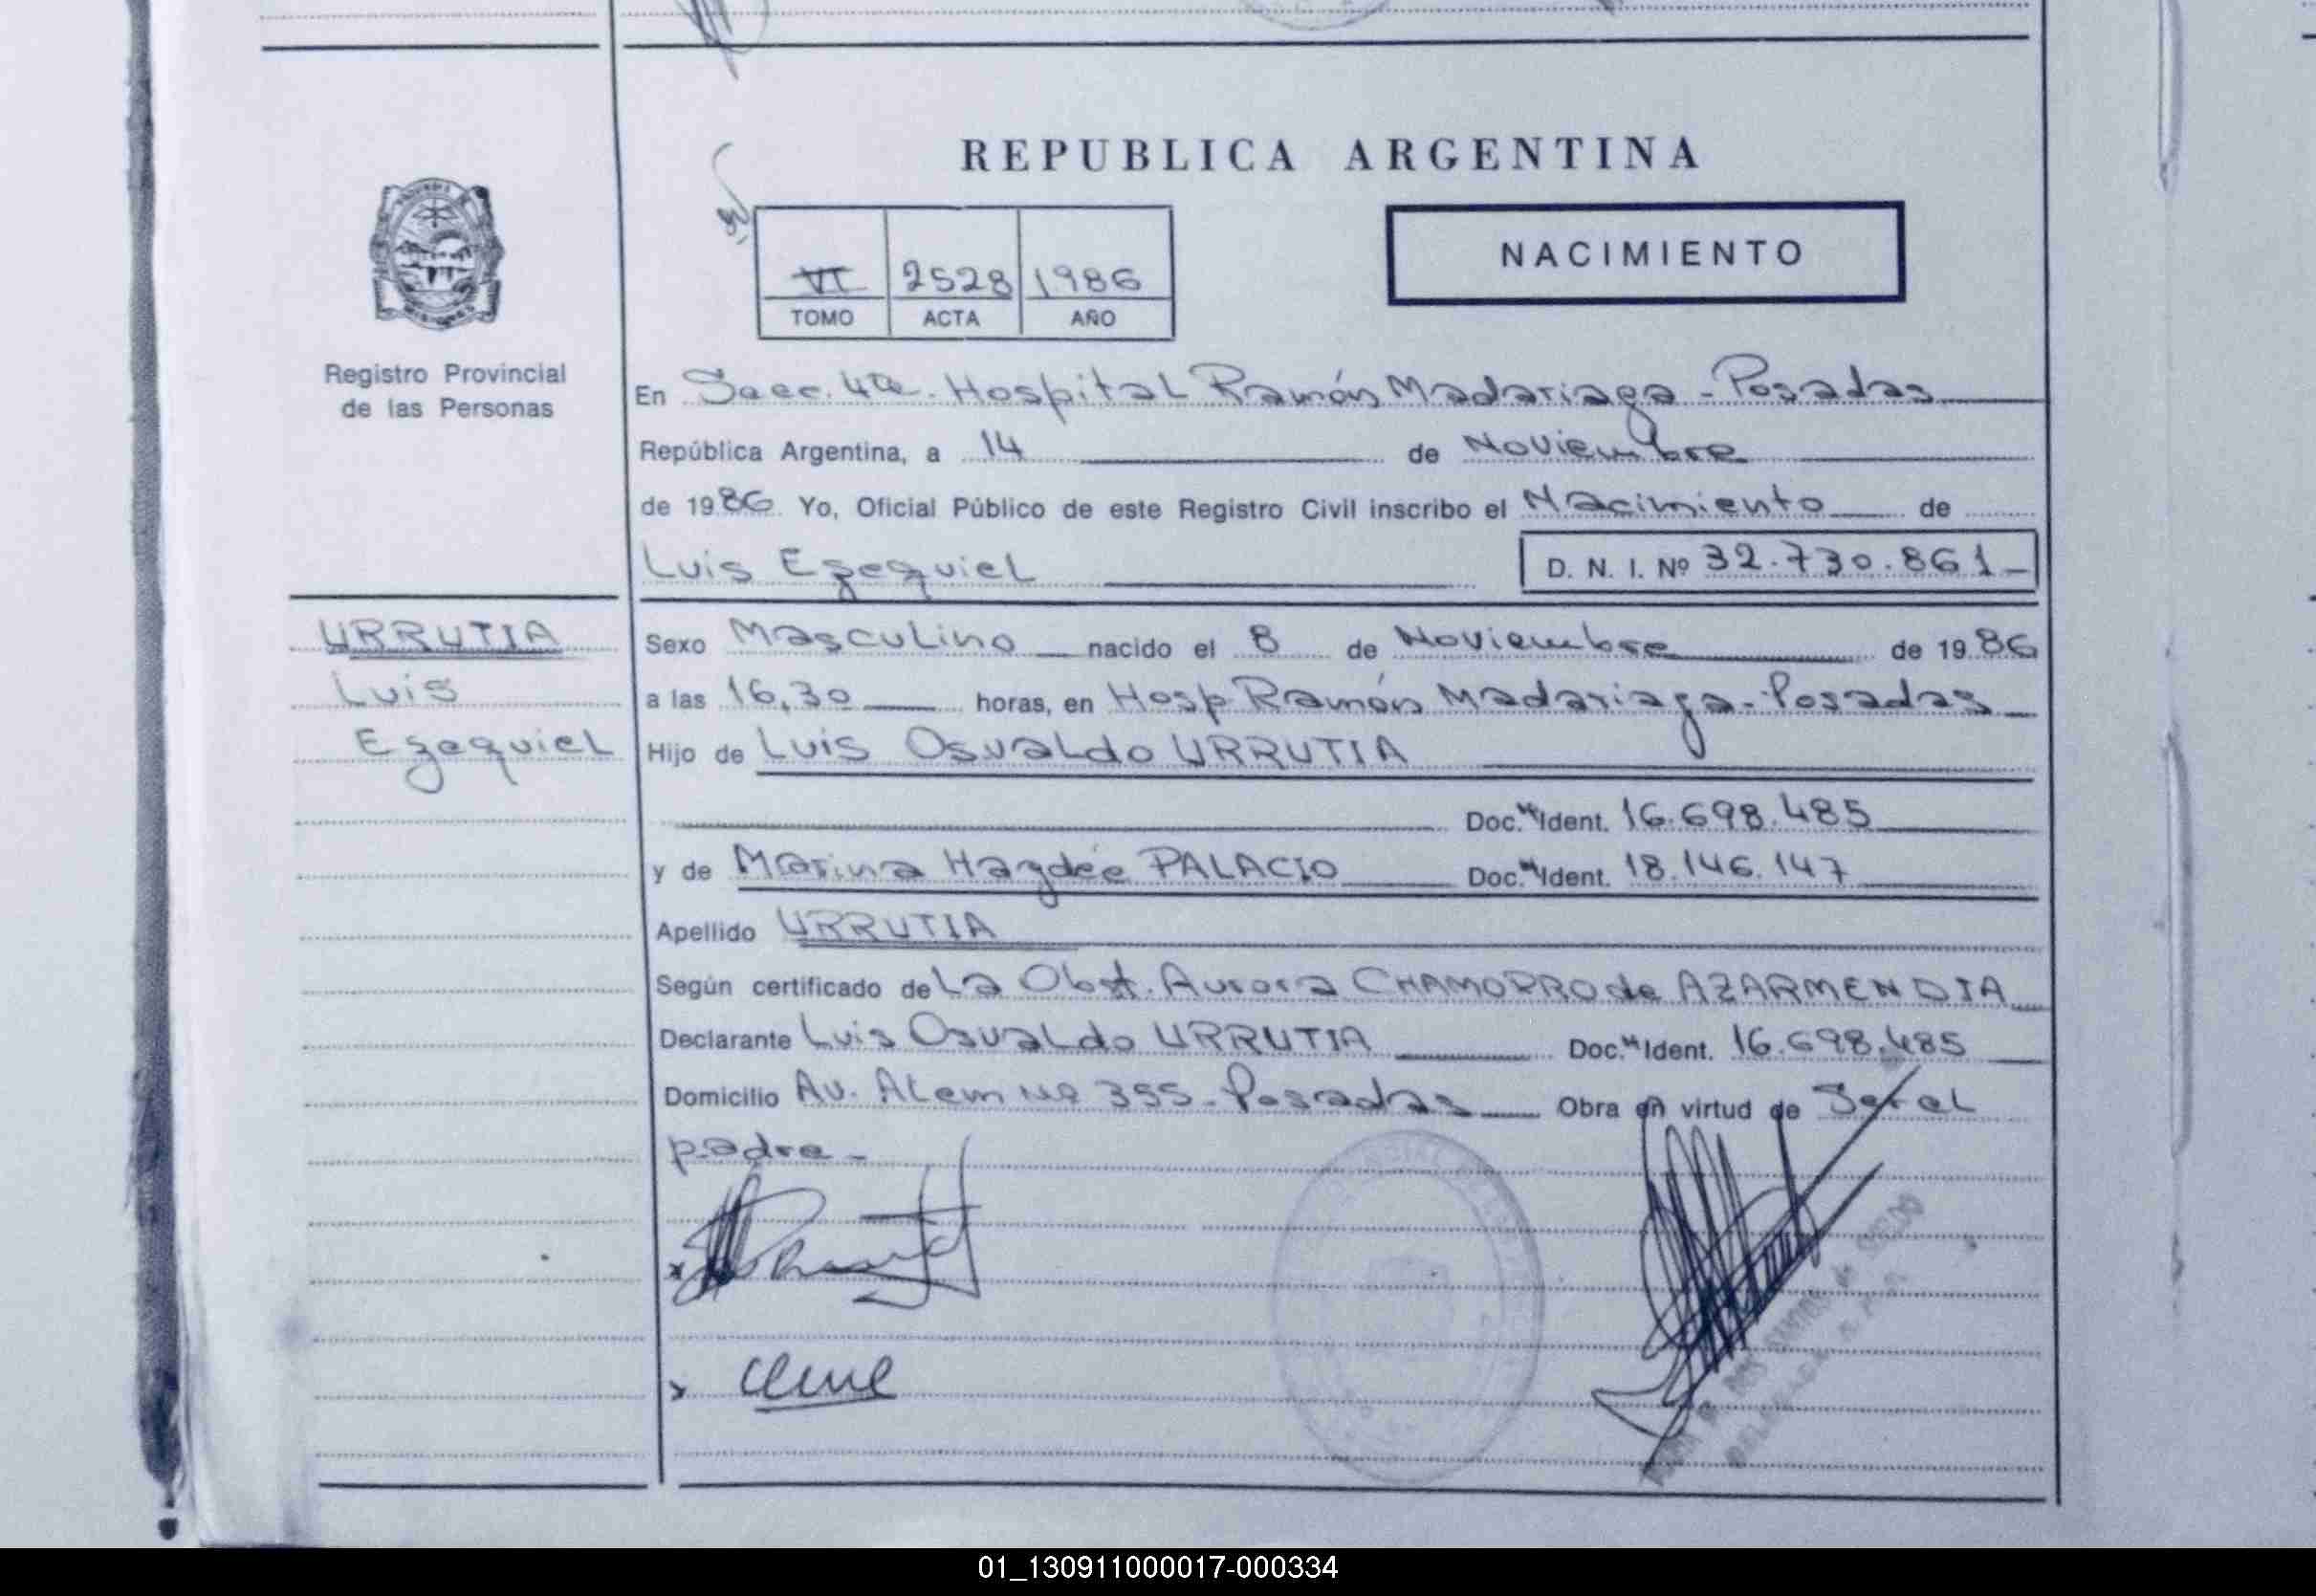 REPUBLICA ARGENTINA
NACIMIENTO
VI 2528 1986
TOMO ACTA AÑO
Registro Provincial
de las Personas
En Secc. 4ta. Hospital Ramón Madariaga - Posadas
República Argentina, a 14 de Noviembre
de 1986. Yo, Oficial Público de este Registro Civil inscribo el Nacimiento de
Luis Ezequiel D. N. I. Nº 32.730.861
URRUTIA
Luis
Ezequiel
Sexo Masculino nacido el 8 de Noviembre de 1986
a las 16,30 horas, en Hosp Ramón Madariaga - Posadas
Hijo de Luis Osvaldo URRUTIA
Doc. Ident. 16.698.485
y de Marina Haydée PALACIO Doc. Ident. 18.146.147
Apellido URRUTIA
Según certificado de La Obst. Aurora CHAMORRO de AZARMENDIA
Declarante Luis Osvaldo URRUTIA Doc. Ident. 16.698.485
Domicilio Av. Alem Nº 355 - Posadas Obra en virtud de Ser el
padre -
01_130911000017-000334